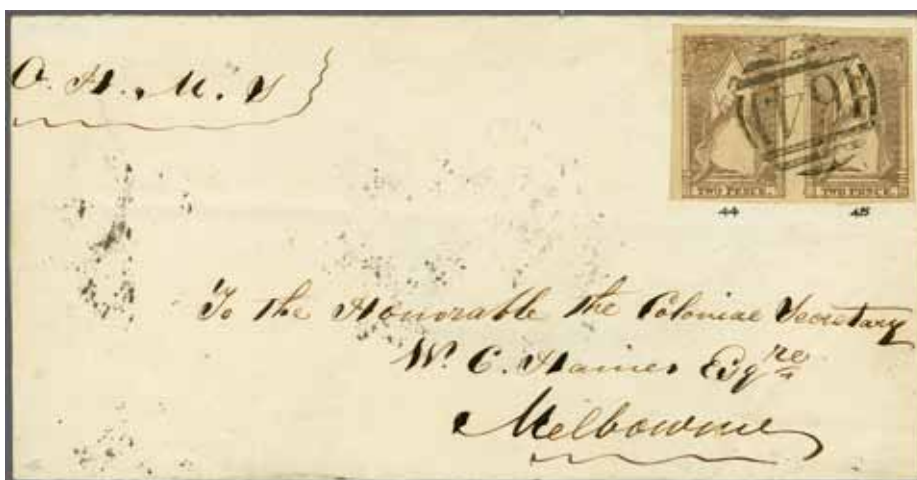 O. H. M. S
TWO PENCE. TWO PENCE.
44 45
To the Honorable the Colonial Secretary
W. C. Haines Esqre
Melbourne